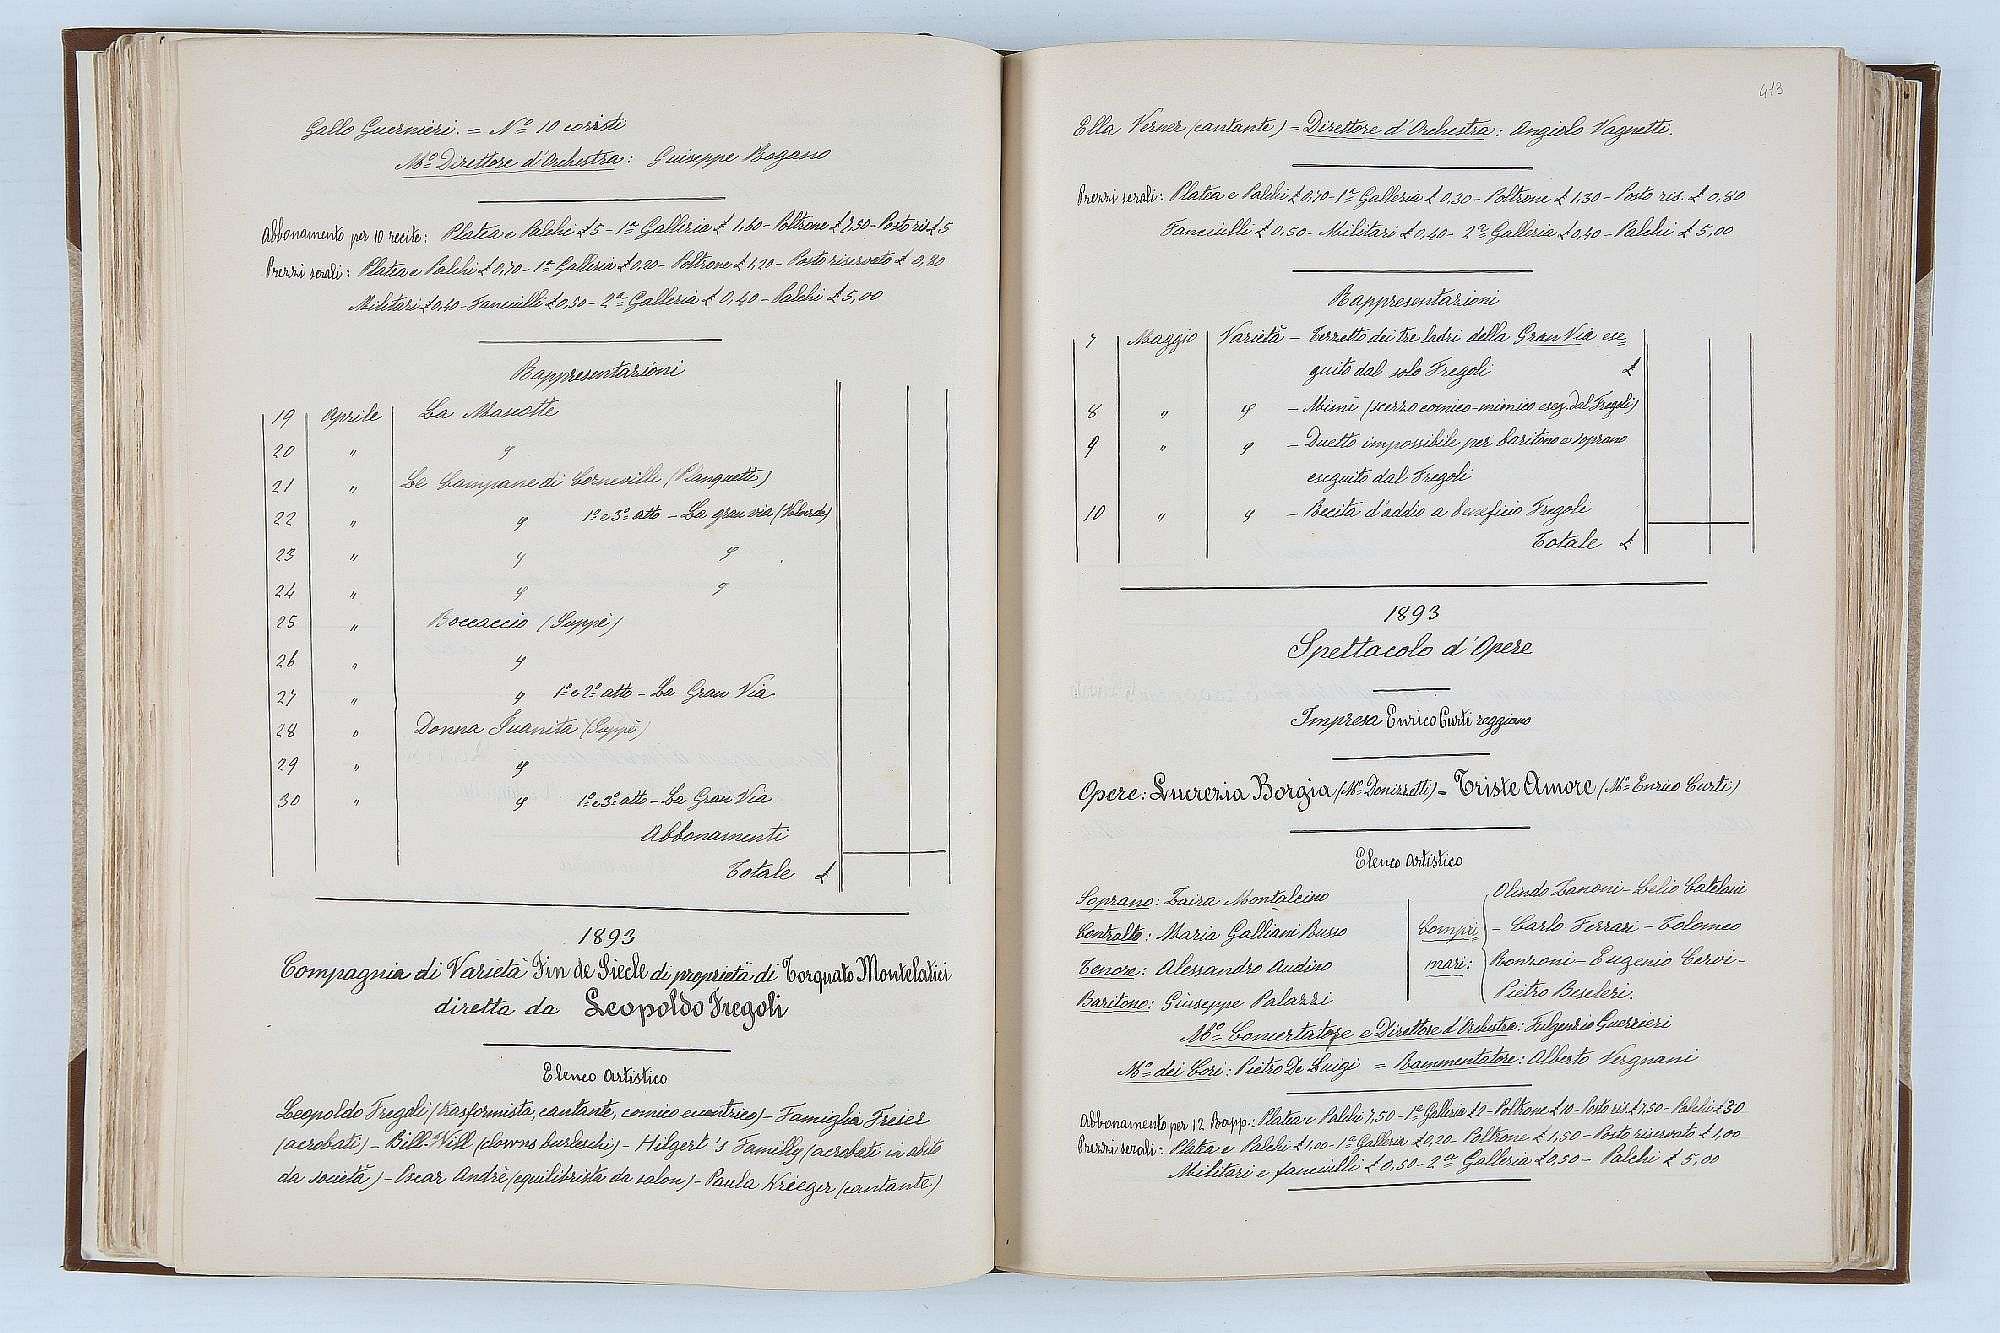 Gallo Guernieri. = Nº 10 coristi
Mº Direttore d'Orchestra: Guiseppe Bogano
Abbonamento per 10 recite: Platea e Palchi £ 5 - 1ª Galleria £ 1,60 - Poltrone £ 7,50 - Posto ris. £ 5
Prezzi serali: Platea e Palchi £ 0,70 - 1ª Galleria £ 0,20 - Poltrone £ 1,20 - Posto riservato £ 0,80
Militari £ 0,40 - Fanciulli £ 0,50 - 2ª Galleria £ 0,40 - Palchi £ 5,00
Rappresentazioni
19 Aprile La Mascotte
20 " "
21 " Le Campane di Corneville (Planquette)
22 " " 1º e 3º atto - La gran via (Valverde)
23 " " "
24 " " "
25 " Boccaccio (Suppè)
26 " "
27 " " 1º e 2º atto - La Gran Via
28 " Donna Juanita (Suppè)
29 " "
30 " " 1º e 3º atto - La Gran Via
Abbonamenti
Totale £
1893
Compagnia di Varietà Fin de Siecle di proprietà di Torquato Montelatici
diretta da Leopoldo Fregoli
Elenco Artistico
Leopoldo Fregoli (trasformista, cantante, comico eccentrico) - Famiglia Freier
(acrobati) - Bill-Will (clowns burleschi) - Hilgert 's Familly (acrobati in abito
da società) - Oscar Andrè (equilibrista da salon) - Paula Krieger (cantante.)
413
Ella Verner (cantante) = Direttore d'Orchestra: Angiolo Vagnetti.
Prezzi serali: Platea e Palchi £ 0,70 - 1ª Galleria £ 0,30 - Poltrone £ 1,30 - Posto ris. £ 0,80
Fanciulli £ 0,50 - Militari £ 0,40 - 2ª Galleria £ 0,40 - Palchi £ 5,00
Rappresentazioni
7 Maggio Varietà - Terzetto dei tre ladri della Gran Via ese=
guito dal solo Fregoli £
8 " " - Mimì (scerzo comico-mimico eseg. dal Fregoli)
9 " " - Duetto impossibile per baritono e soprano
eseguito dal Fregoli
10 " " - Recita d'addio a beneficio Fregoli
Totale £
1893
Spettacolo d'Opere
Impresa Enrico Curti reggiano
Opere: Lucrezia Borgia (Mº Donizzetti) = Triste Amore (Mº Enrico Curti)
Elenco Artistico
Soprano: Zaira Montalcino
Contralto: Maria Galliani Russo
Tenore: Alessandro Audino
Baritono: Giuseppe Palazzi
Compri=
mari:
Olindo Zanoni - Lelio Catelani
- Carlo Ferrari - Tolomeo
Bonzoni - Eugenio Cervi -
Pietro Beseleri.
Mº Concertatore e Direttore d'Orchestra: Fulgenzio Guerrieri
Mº dei Cori: Pietro De Luigi = Rammentatore: Alberto Vergnani
Abbonamento per 12 Rapp.: Platea e Palchi 7,50 - 1ª Galleria £ 2 - Poltrone £ 10 - Posto ris. £ 7,50 - Palchi £ 30
Prezzi serali: Platea e Palchi £ 1,00 - 1ª Galleria £ 0,20 - Poltrone £ 1,50 - Posto riservato £ 1,00
Militari e fanciulli £ 0,50 - 2ª Galleria £ 0,50 - Palchi £ 5,00